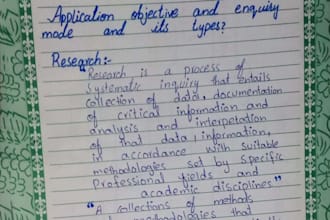 Application objective and enquiry
mode and its types?
Research:-
"Research is a process of
Systematic inquiry that entails
Collection of data, documentation
of critical information and
analysis and interpetation
of that data, information,
in accordance with suitable
methodologies set by specific
Professional fields and
academic disciplines"
"A collections of methods
methodologies that